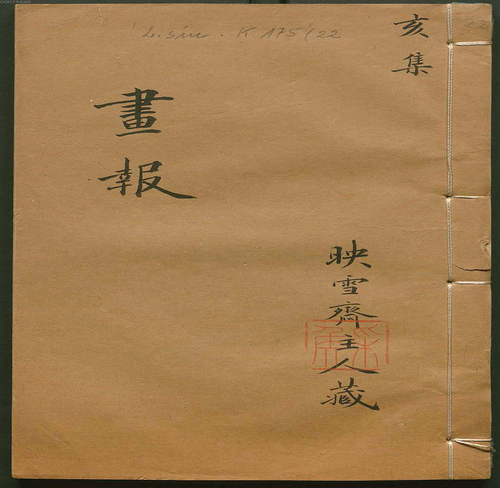 L. sin. K 175/22
22
亥集
畫報
映雪齊主人藏